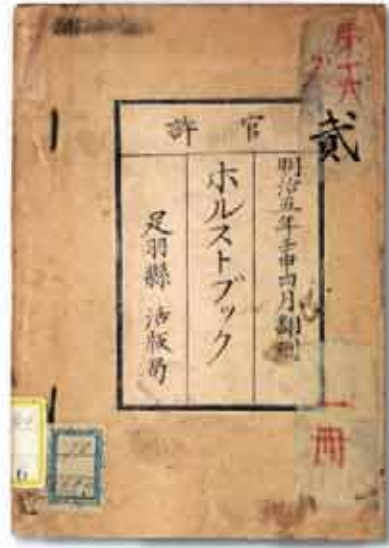 官許
明治五年壬申四月翻刻
ホルストブック
足羽縣 活版局
貳
一冊